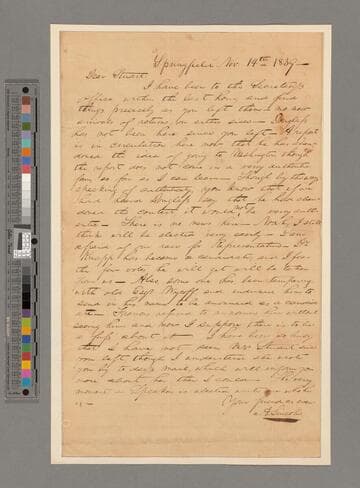 Springfield Nov. 14th 1839—
Dear Stuart:
I have been to the Secretary's
office within the last hour, and find
things precisely as you left them; no new
arrivals of returns on either side. Douglass
has not been here since you left. A report
is in circulation here now that he has aban-
doned the idea of going to Washington; though
the report does not come in a very authentic
form so far as I can learn. Though by the way,
speaking of authenticity, you know that if we
had heard Douglass say that he had aban-
doned the contest, it would not be very authen-
tic. There is no news here. Noah, I still
think will be elected very easily. I am
afraid of our race for Representative. Dr.
Knapp has become a candidate; and I fear
the few votes he will get will be taken
from us. Also some one has been tampering
with old Esqr Wyckoff, and induced him to
send in his name to be announced as a candid
ate. Francis refused to announce him without
seeing him, and now I suppose there is to be
a fuss about it. I have been so busy
that I have not seen Mrs. Stuart since
you left, though I understand she wrote
you by to days mail, which will inform you
more about her than I could. The very
moment a Speaker is elected write me who he
is—
Your friend as ever
A. Lincoln